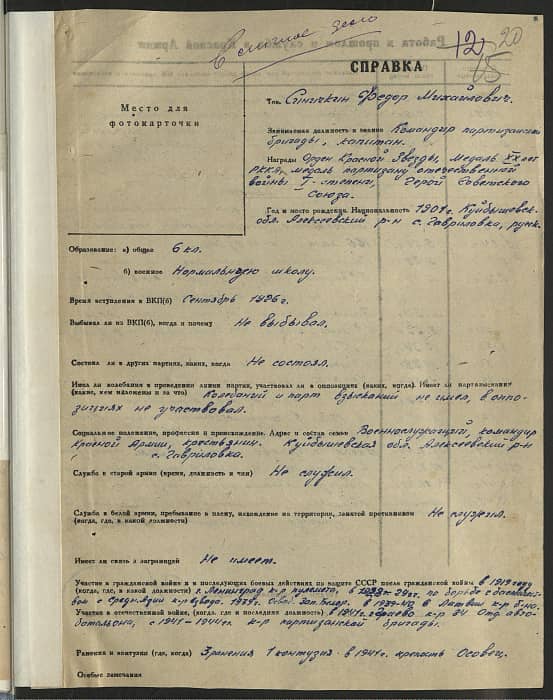 В личное дело
12
20
15
СПРАВКА
Место для
фотокарточки
Тов. Синичкин Федор Михайлович.
Занимаемая должность и звание Командир партизанской
бригады, капитан.
Награды Орден Красной Звезды, Медаль XX лет
РККА, медаль партизану отечественной
войны I-степени, Герой Советского
Союза.
Год и место рождения. Национальность 1901г. Куйбышевск.
обл. Алексеевский р-н с. Гавриловка, русск.
Образование: а) общее 6 кл.
б) военное Нормальную школу.
Время вступления в ВКП(б) Сентябрь 1926 г.
Выбывал ли из ВКП(б), когда и почему Не выбывал.
Состоял ли в других партиях, каких, когда Не состоял.
Имел ли колебания в проведении линии партии, участвовал ли в оппозиции (каких, когда). Имеет ли партвзыскания
(какие, кем наложены и за что) Колебаний и парт взысканий не имел, в оппо-
зициях не участвовал.
Социальное положение, профессия и происхождение. Адрес и состав семьи Военнослужащий, командир
Красной Армии, крестьянин. Куйбышевская обл. Алексеевский р-н
с. Гавриловка.
Служба в старой армии (время, должность и чин) Не служил.
Служба в белой армии, пребывание в плену, нахождение на территории, занятой противником Не служил.
(когда, где, в какой должности)
Имеет ли связь с заграницей Не имеет.
Участие в гражданской войне и в последующих боевых действиях по защите СССР после гражданской войны в 1919 году
(когда, где, в какой должности) г. Ленинград к-р пулемета, в по борьбе с басмачест-
вом с Сред. Азии к-р взвода. 1939г. Освоб. Зап. Белор. в 1939-40 в Латвии к-р б-на.
Участие в отечественной войне, (когда, где и последняя должность) в 1941г. к-р 34 Отд. авто-
батальона, с 1941-1944гг. к-р партизанской бригады.
Ранения и контузии (где, когда) 3 ранения 1 контузия в 1941г. крепость Осовец.
Особые замечания